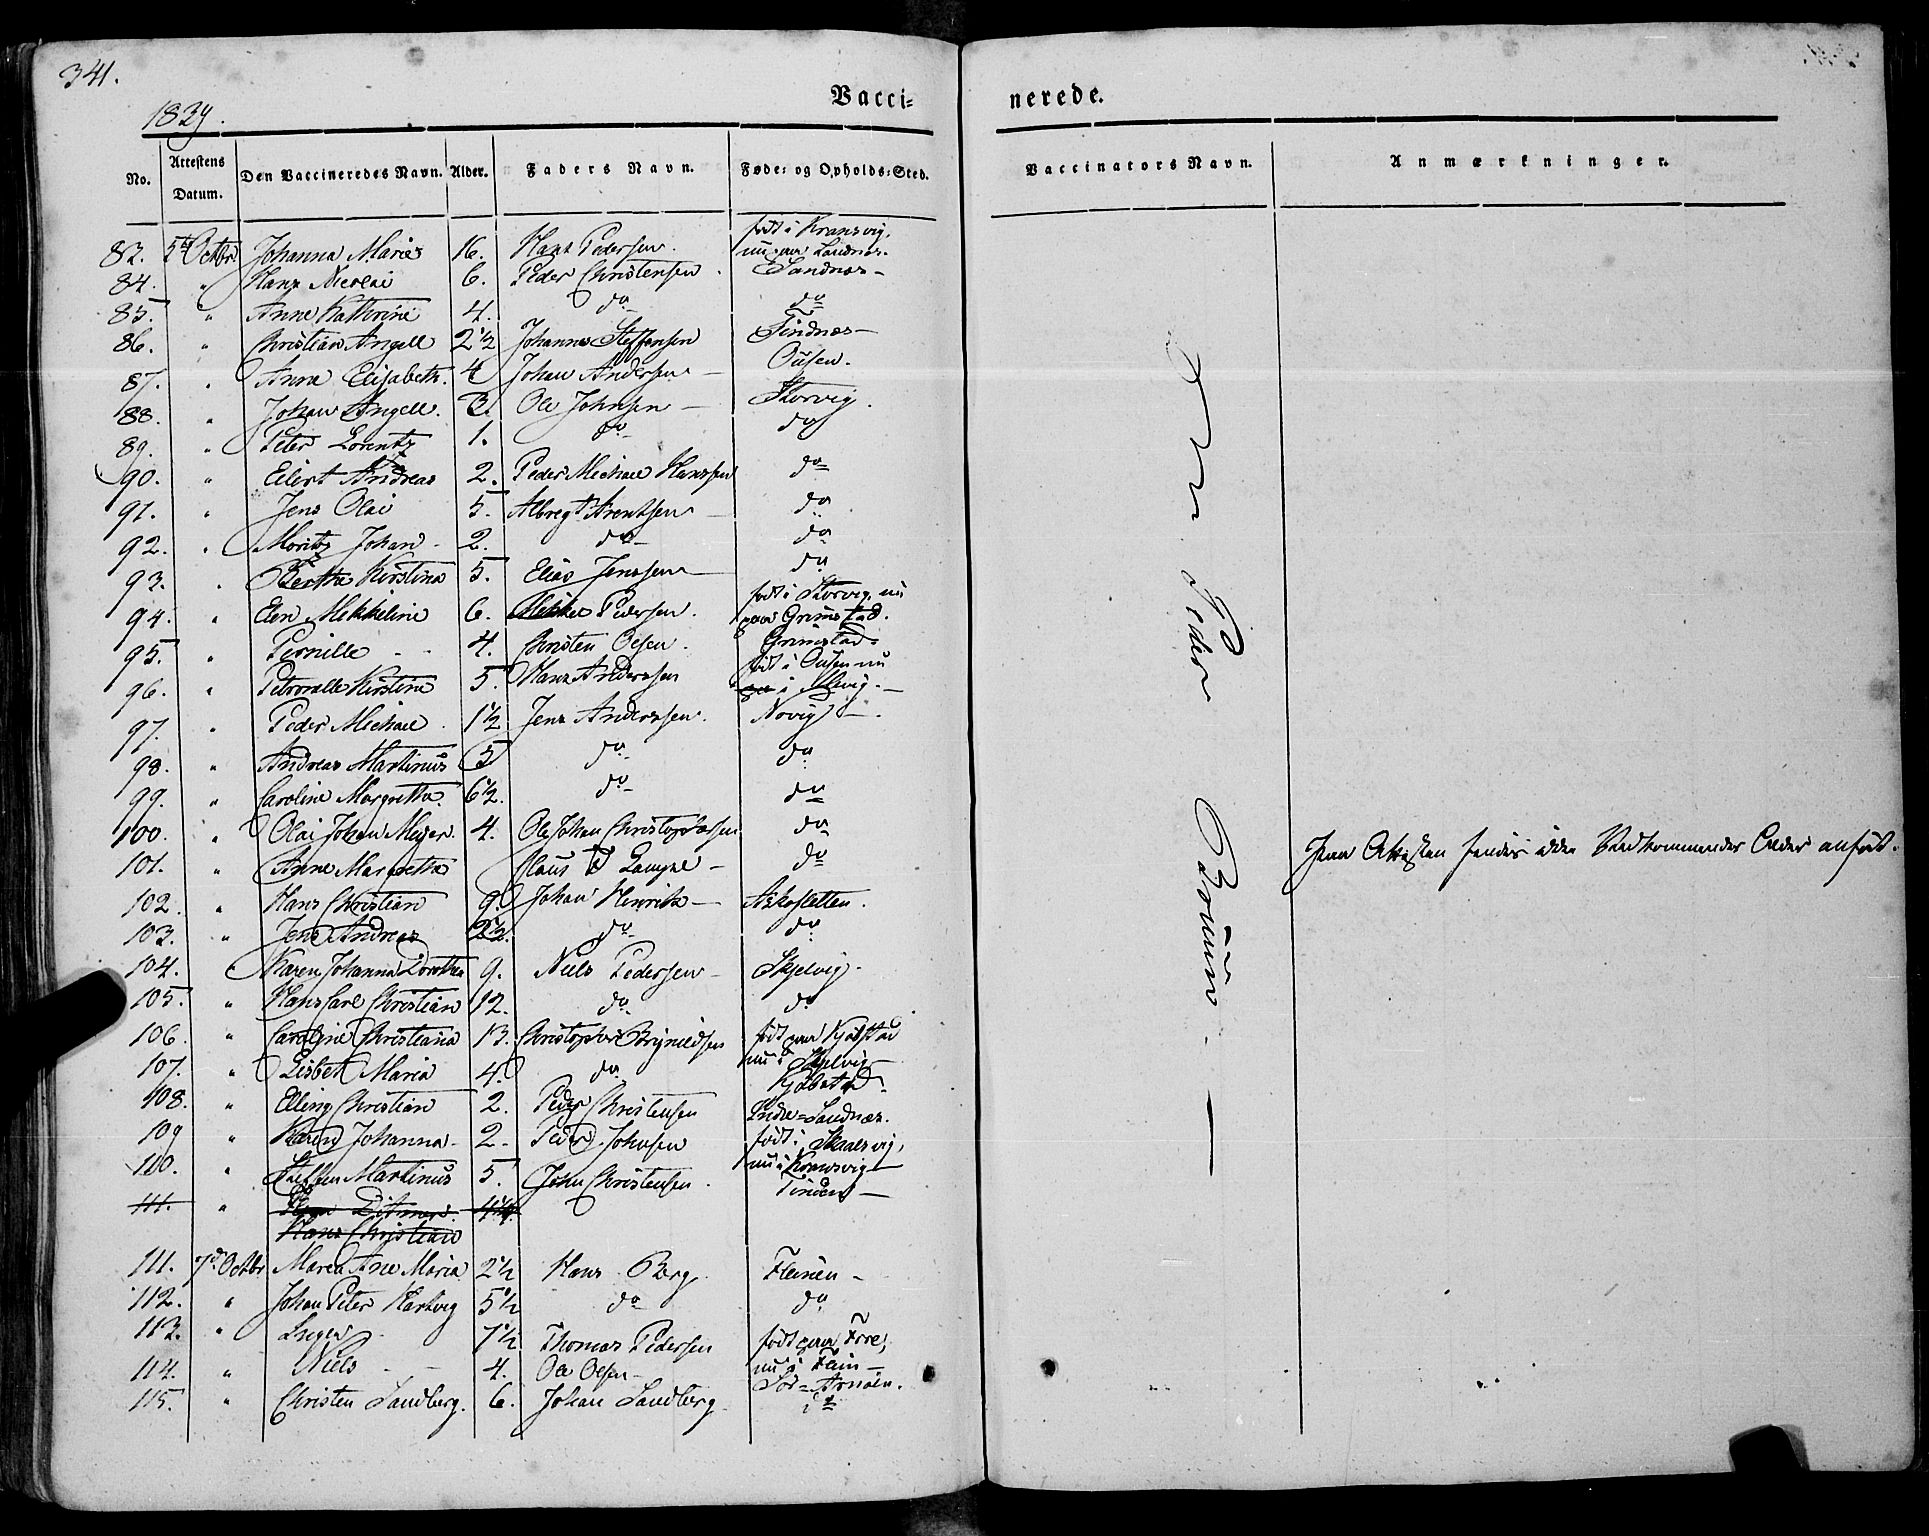 341.
1829.
Vacci-
nerede.
No. Attestens Datum. Den Vaccineredes Navn. Alder. Faders Navn. Føde- og Opholds-Sted.
Vaccinators Navn. Anmærkninger.
83. 5te Octbr Johanna Marie 16. Hans Pedersen. født i Kransvig, nu paa Sandnes.
84. " Hans Nicolai 6. Peder Christensen. Sandnes-
85. " Anne Kathrine 4. do do
86. " Christian Angell 2½ Johannes Steffensen Tindnes-
87. " Anne Elisabeth. 4 Johan Andersen- Ousen.
88. " Johan Angell. 3. Ole Johnsen- Storvig.
89. " Peter Lorentz 1. do do
90. " Elert Andreas 2. Peder Michael Hanssen do
91. " Jens Olai 5. Albregt Arentsen- do
92. " Moritz Johan- 2. do- do
93. " Berthe Kirstina 5. Elias Jenssen- do
94. " Elen Mekkeline 6. Mikkel Pedersen. født i Storvig, nu paa Grimstad.
95. " Pernille - - 4. Christen Olsen. Grimstad-
96. " Petronelle Kirstine 5. Hans Anderssen født i Ousen nu i Alsvig.-
97. " Peder Michael. 1½ Jens Anderssen. Novig-.
98. " Andreas Martinus 5 do do
99. " Caroline Margretha 6½. do- do
100. " Olai Johan Meyer. 4. Ole Johan Christophersen do
101. " Anne Margretha Claus Lampe- do
102. " Hans Christian 9. Johan Henrik-
103. " Jens Andreas 2½. do- do
104. " Karen Johanna Dorothea 9. Niels Pedersen- Skjelvig.
105. " Hans Carl Christian 12. do. do
106. " Caroline Christiana 13. Christopher Brynildsen født paa Kjølstad nu i Skjelvig-
107. " Lisbet Maria 4. do
108. " Elling Christian 2. Peder Christensen Indre-Sandnes.
109 " Karen Johanna- 2. Peder Johnsen født i Skaalsvig, nu i
110. " Steffen Martinus 5. John Christensen. Tinden-
111. " Ditmar. Hans Christian
111. 7d Octbr Maren Ane Maria 2½ Hans Berg. Fleinen-
112. " Johan Peter Hartvig 5½ do do
113. " Inger 7½ Thomas Pedersen født paa Fore, nu i Flein-
114. " Niels - - 4. Ole Olsen- Sør-Arnøen.
115. " Christen Sandberg. 6. Johan Sandberg do
Peder
Paa Attesten findes ikke Vedkommendes Alder anført.